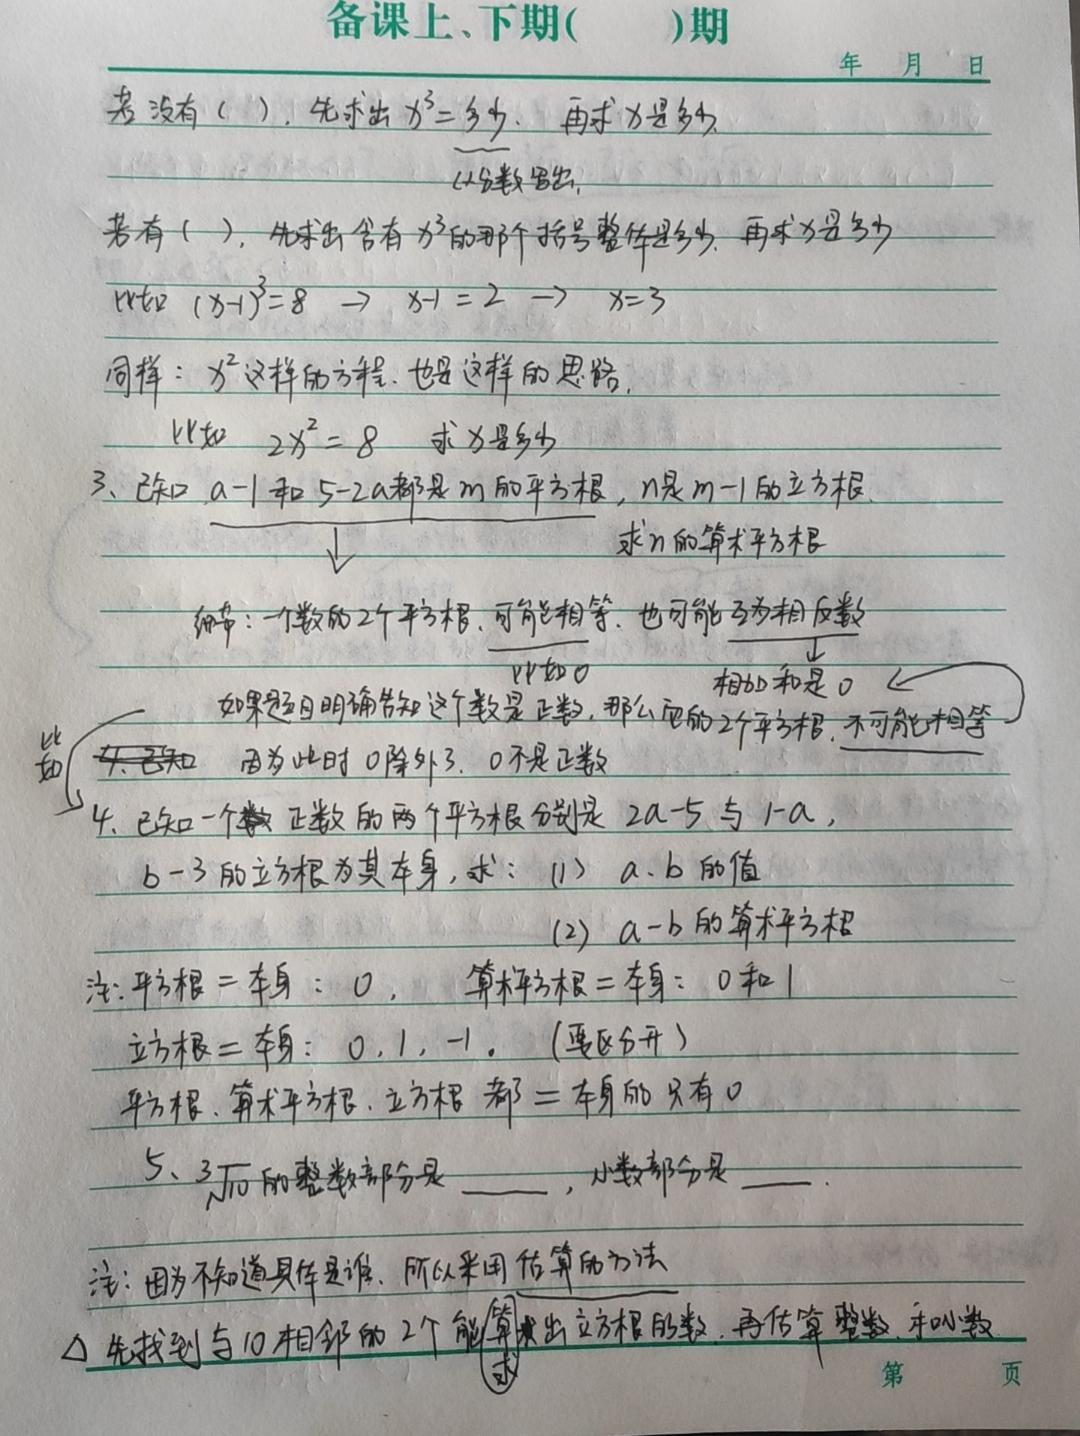 备课上、下期(　　)期
年　月　日
若没有（ ），先求出 x³=多少，再求x是多少
以分数写出，
若有（ ），先求出含有x³的那个括号整体是多少，再求x是多少
比如 (x-1)³=8 → x-1=2 → x=3
同样：x²这样的方程，也是这样的思路，
比如 2x²=8 求x是多少
3、已知 a-1和5-2a都是m的平方根，n是m-1的立方根，
求n的算术平方根
↓
细节：一个数的2个平方根，可能相等，也可能互为相反数
比如0
↓
相加和是0
如果题目明确告知这个数是正数，那么它的2个平方根，不可能相等
因为此时0除外了，0不是正数
比如
4、已知一个正数的两个平方根分别是2a-5与1-a，
b-3的立方根为其本身，求：(1) a、b的值
(2) a-b的算术平方根
注：平方根=本身：0， 算术平方根=本身：0和1
立方根=本身：0，1，-1。（要区分开）
平方根、算术平方根、立方根 都=本身的只有0
5、³√10的整数部分是____，小数部分是____.
注：因为不知道具体是谁，所以采用估算的方法
△ 先找到与10相邻的2个能求出立方根的数，再估算整数和小数
第　页